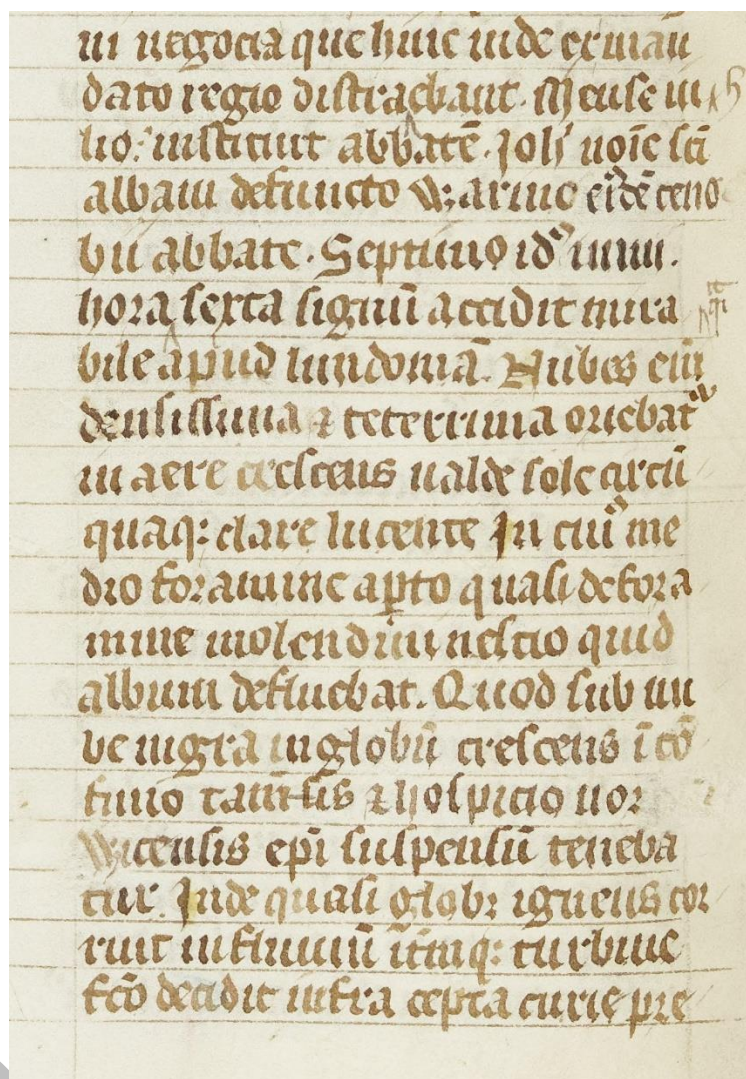 in negocia que huic inde ex man
dato regio distraebant. Mense iu
lio: instituit abbatē. Joħs noīe sci
albani defuncto Warino eiꝰdē ceno
bii abbate. Septimo idꝰ iunii.
hora sexta signū accidit mira
bile apud lundoniā. Nubes eni
densissima ⁊ teterrima oriebatᵘʳ
in aere crescens ualde sole circū
quaq; clare lucente In cuiꝰ me
dio foramine apto quasi de fora
mine molendini nescio quid
album defluebat. Quod sub nu
be nigra in globū crescens ī cō
finio tamisis ⁊ hospicio nor
wicensis epi suspensū teneba
tur. Inde quasi globꝰ igneus cor
ruit in fluuiū itaq; turbine
fcō decidit infra cepta curie pre